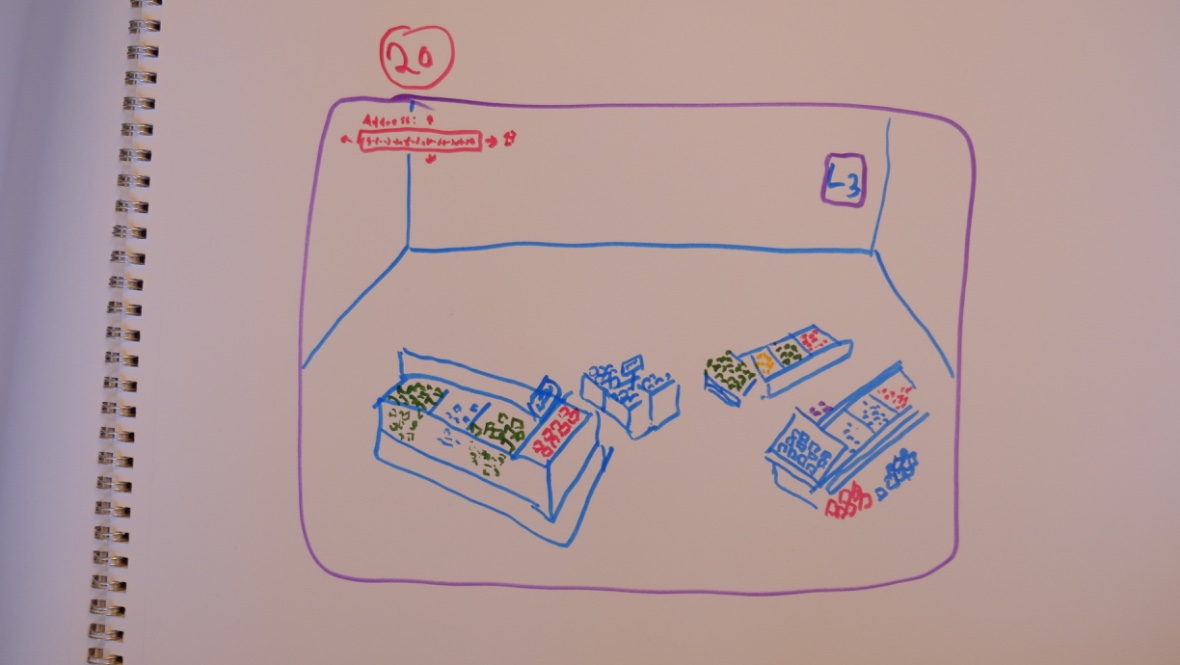 20
Address:
L3